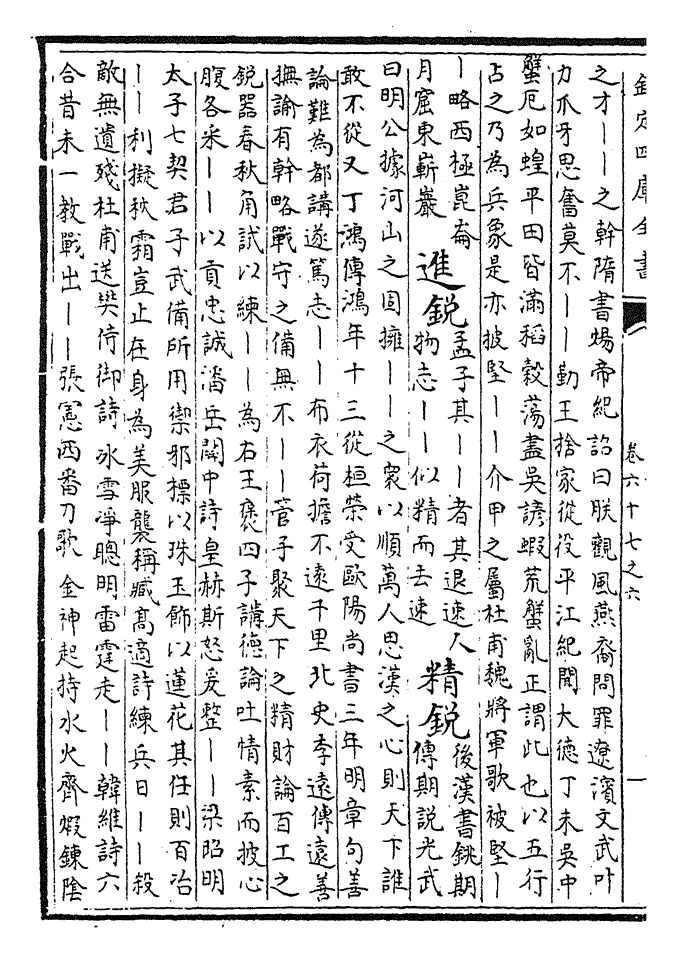 欽定四庫全書 卷六十七之六
之才——之幹隋書煬帝紀詔曰朕觀風燕裔問罪遼濱文武叶
力爪牙思奮莫不——勤王捨家從役平江紀聞大德丁未吳中
蟹厄如蝗平田皆滿稻穀蕩盡吳諺蝦荒蟹亂正謂此也以五行
占之乃為兵象是亦披堅——介甲之屬杜甫魏將軍歌被堅—
—略西極崑崙月窟東嶄巖 進銳 孟子其——者其退速人物志——似精而去速 精銳 後漢書銚期傳期說光武
曰明公據河山之固擁——之衆以順萬人思漢之心則天下誰
敢不從又丁鴻傳鴻年十三從桓榮受歐陽尚書三年明章句善
論難為都講遂篤志——布衣荷擔不遠千里北史李遠傳遠善
撫諭有幹略戰守之備無不——管子聚天下之精財論百工之
銳器春秋角試以練——為右王褒四子講德論吐情素而披心
腹各悉——以貢忠誠潘岳關中詩皇赫斯怒爰整——梁昭明
太子七契君子武備所用禦邪標以珠玉飾以蓮花其任則百冶
——利擬秋霜豈止在身為美服襲稱臧高適詩練兵日——殺
敵無遺殘杜甫送樊侍御詩冰雪淨聰明雷霆走——韓維詩六
合昔未一教戰出——張憲西番刀歌金神起持水火齊煅鍊陰